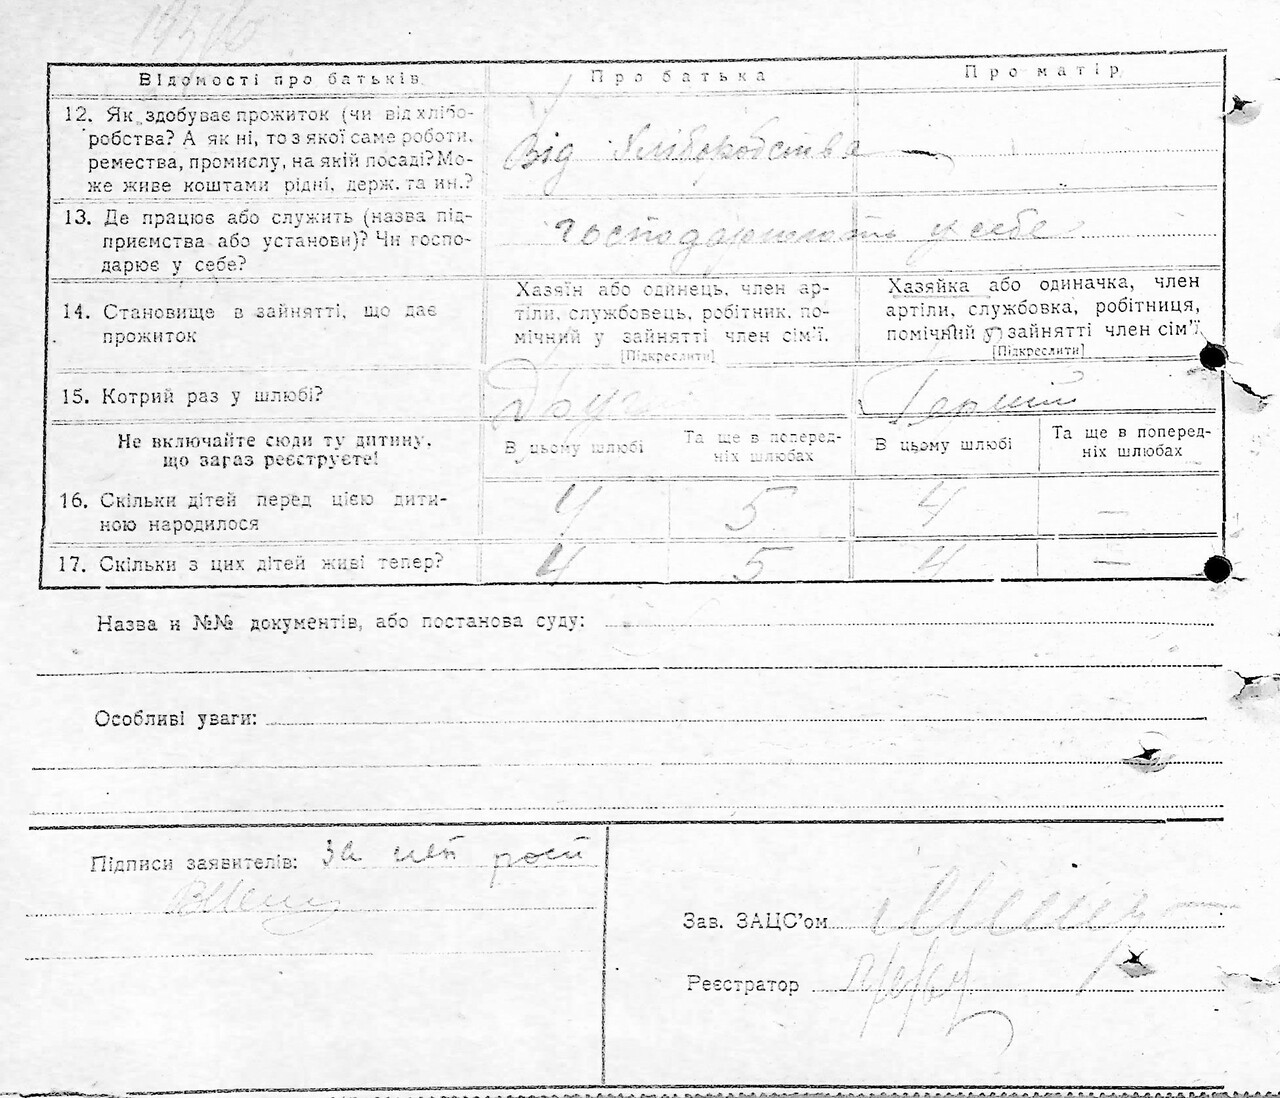 Відомості про батьків. Про батька Про матір
12. Як здобуває прожиток (чи від хлібо-
робства? А як ні, то з якої саме роботи,
ремества, промислу, на якій посаді? Мо-
же живе коштами рідні, держ. та ин.?
Від хліборобства
13. Де працює або служить (назва під-
приємства або установи)? Чи госпо-
дарює у себе?
господарюють у себе
14. Становище в зайнятті, що дає
прожиток
Хазяїн або одинець, член ар-
тілі, службовець, робітник, по-
мічний у зайнятті член сім'ї.
[Підкреслити]
Хазяйка або одиначка, член
артілі, службовка, робітниця,
помічний у зайнятті член сім'ї.
[Підкреслити]
15. Котрий раз у шлюбі?
Перший
Не включайте сюди ту дитину,
що загаз реєструєте!
В цьому шлюбі
Та ще в поперед-
ніх шлюбах
В цьому шлюбі
Та ще в поперед-
ніх шлюбах
16. Скільки дітей перед цією дити-
ною народилося
4 5 4 —
17. Скільки з цих дітей живі тепер? 4 5 4 —
Назва и №№ документів, або постанова суду:
Особливі уваги:
Підписи заявителів: за
Зав. ЗАЦС'ом
Реєстратор